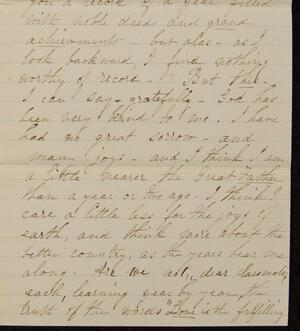 you a record of a year filled
with noble deeds and grand
achievements - but alas - as I
look backward, I find nothing
worthy of record - But this -
I can say - gratefully - God has
been very kind to me. I have
had no great sorrow - and
many joys - and I think I am
a little nearer the Great Father
than a year or two ago. I think I
care a little less for the joys of
earth, and think more about the
better country, as the years bear me
along. Are we not, dear classmates,
each, learning year by year, the
truth of the words "Love is the fulfilling